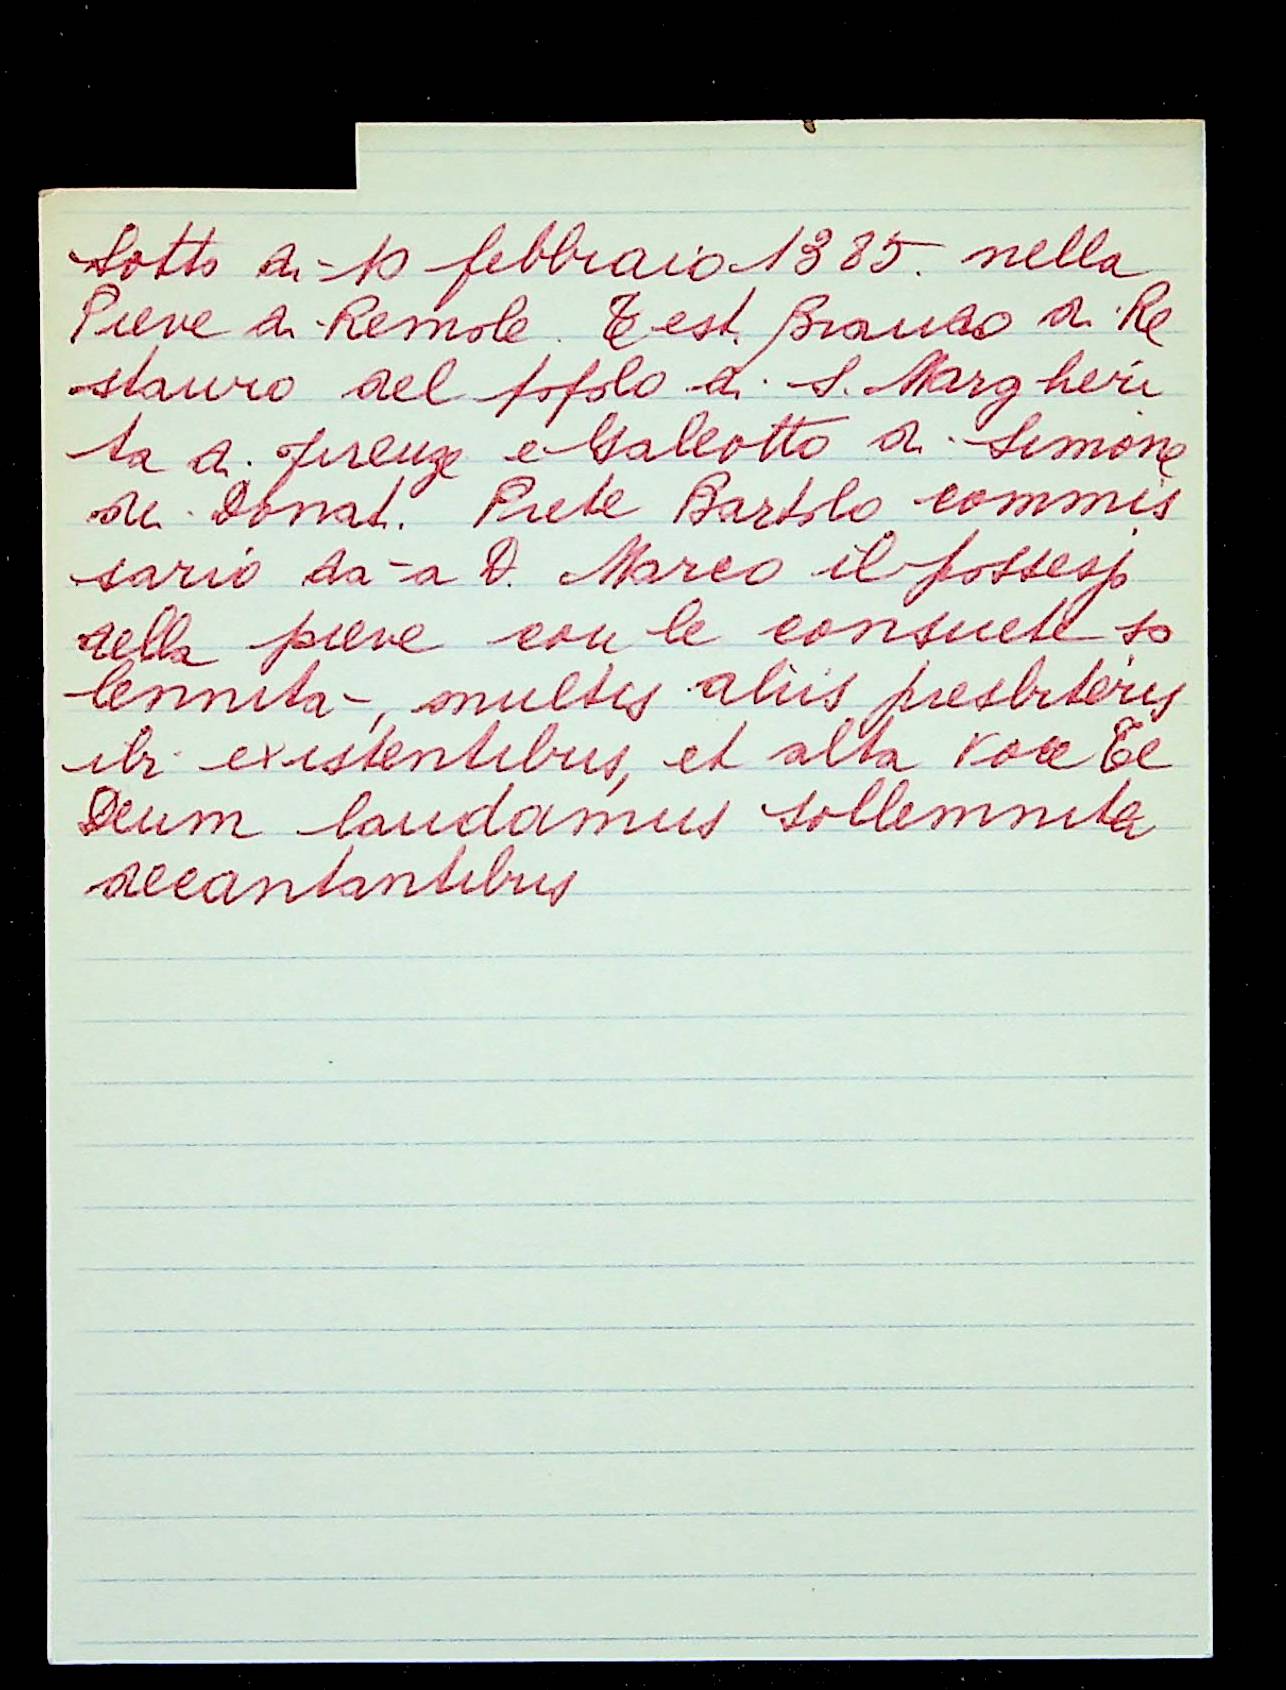 Sotto dì 10 febbraio 1385. nella
Pieve di Remole. Test. Brando di Re
stauro del popolo di S. Margheri
ta di Firenze e Galeotto di Simone
di Donat. Prete Bartolo commis
sario da a D. Marco il possesso
della pieve con le consuete so
lennità, multis aliis presbiteris
ibi existentibus, et alta voce Te
Deum laudamus sollemnita
decantantibus